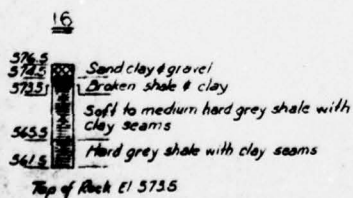 16
576.5
574.5 Sand clay & gravel
573.5 Broken shale & clay
Soft to medium hard grey shale with
565.5 clay seams
Hard grey shale with clay seams
561.5
Top of Rock El 573.5